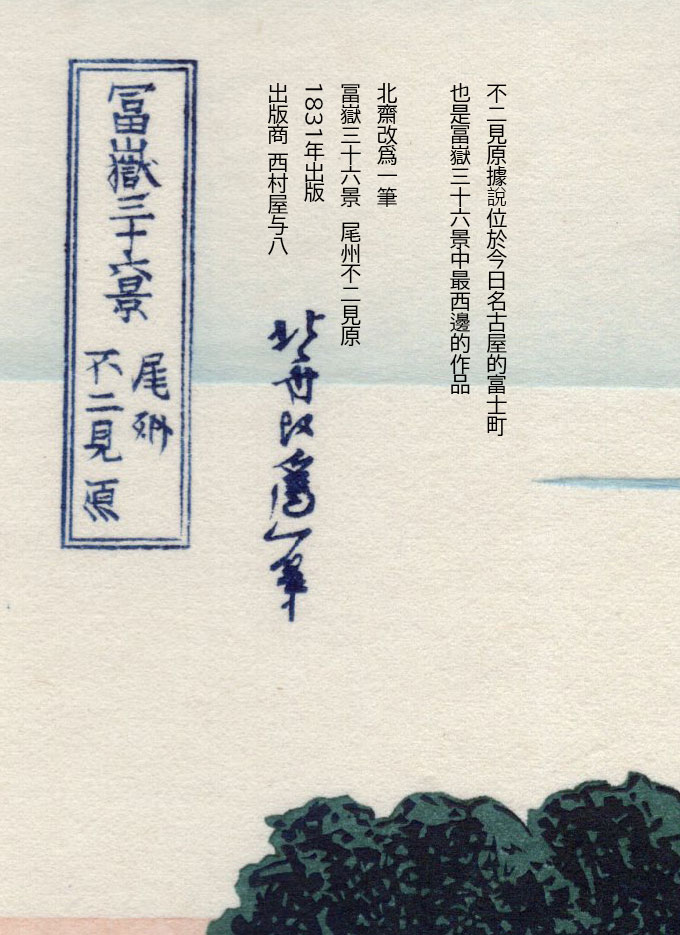 不二見原據說位於今日名古屋的富士町
也是冨嶽三十六景中最西邊的作品
北齋改爲一筆
冨嶽三十六景 尾州不二見原
1831年出版
出版商 西村屋与八
北斎改爲一筆
冨嶽三十六景
尾州
不二見原